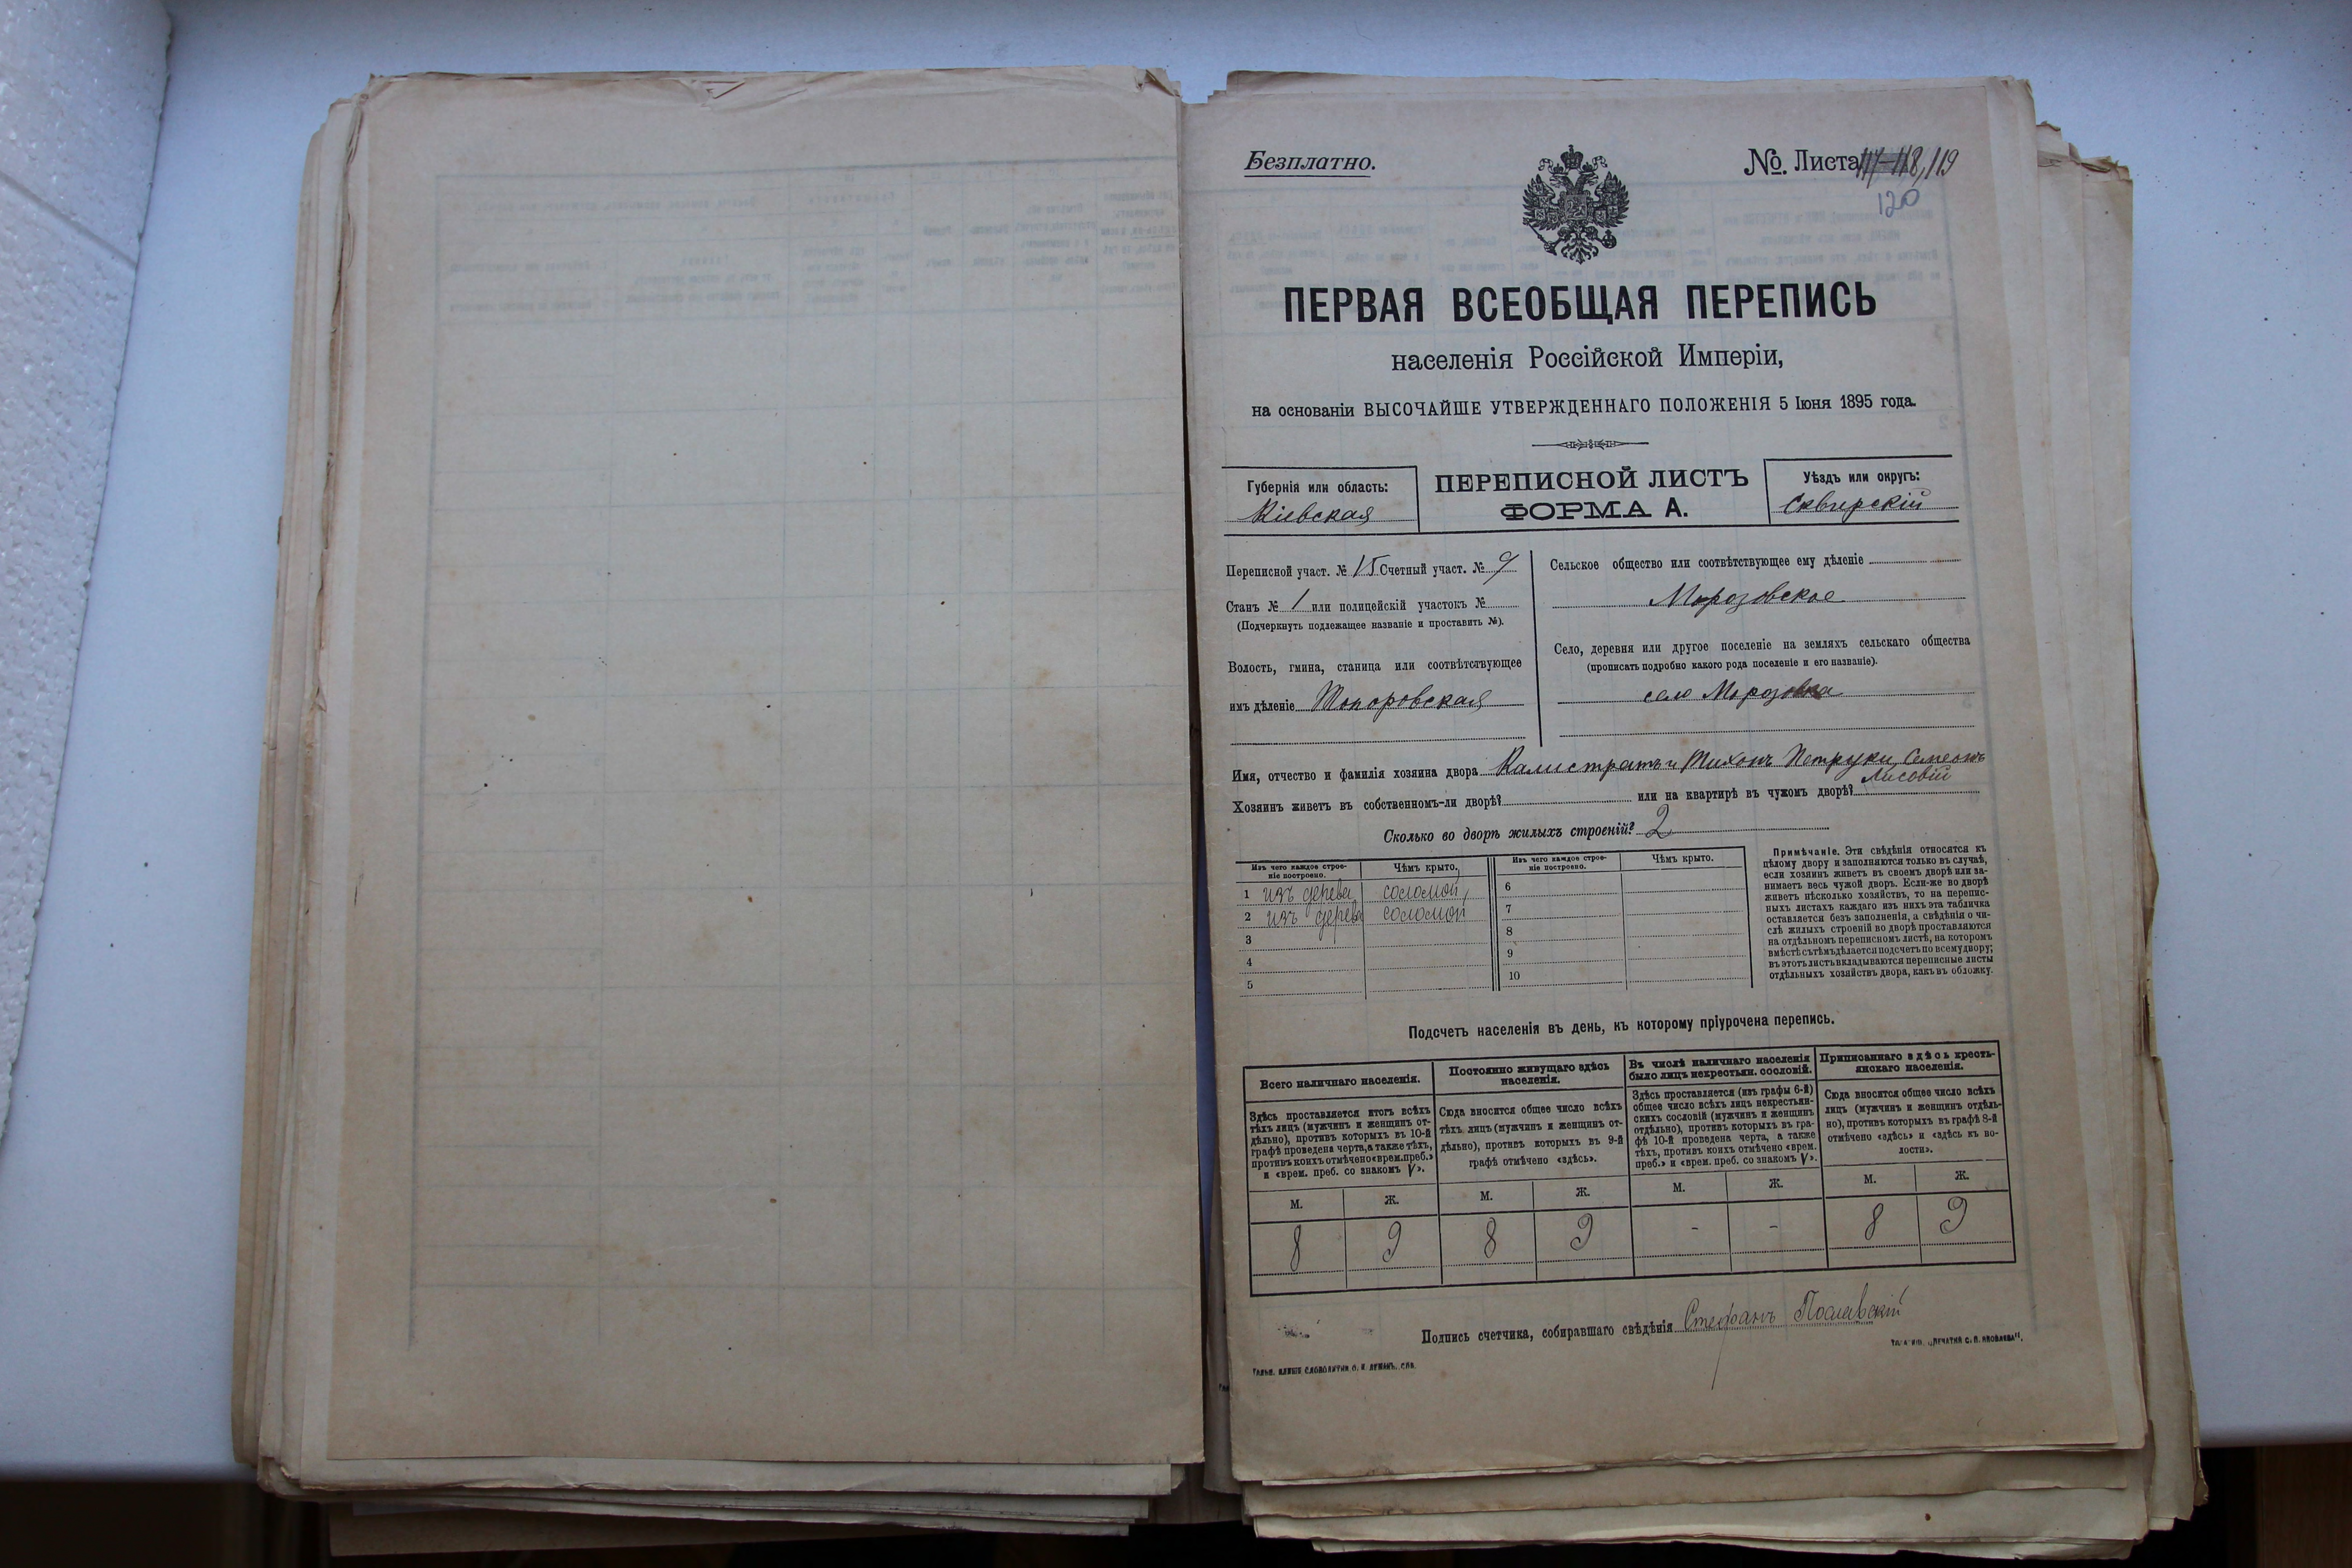 Безплатно.
№. Листа 117-118, 119
120
ПЕРВАЯ ВСЕОБЩАЯ ПЕРЕПИСЬ
населенія Россійской Имперіи,
на основаніи ВЫСОЧАЙШЕ УТВЕРЖДЕННАГО ПОЛОЖЕНІЯ 5 Іюня 1895 года.
Губернія или область:
Кіевская
ПЕРЕПИСНОЙ ЛИСТЪ
ФОРМА А.
Уѣздъ или округъ:
Сквирскій
Переписной участ. № 15 Счетный участ. № 9
Станъ № 1 или полицейскій участокъ №
(Подчеркнуть подлежащее названіе и проставить №).
Волость, гмина, станица или соотвѣтствующее
имъ дѣленіе Топоровская
Сельское общество или соотвѣтствующее ему дѣленіе
Морозовское
Село, деревня или другое поселеніе на земляхъ сельскаго общества
(прописать подробно какого рода поселеніе и его названіе).
село Морозовка
Имя, отчество и фамилія хозяина двора Калистратъ и Тихонъ Петруки, Семеонъ
Лисовій
Хозяинъ живетъ въ собственномъ-ли дворѣ? или на квартирѣ въ чужомъ дворѣ?
Сколько во дворѣ жилыхъ строеній? 2
Изъ чего каждое строе-
ніе построено.
Чѣмъ крыто.
Изъ чего каждое строе-
ніе построено.
Чѣмъ крыто.
1 изъ дерева соломой 6
2 изъ дерева соломой 7
3 8
4 9
5 10
Примѣчаніе. Эти свѣдѣнія относятся къ
цѣлому двору и заполняются только въ случаѣ,
если хозяинъ живетъ въ своемъ дворѣ или за-
нимаетъ весь чужой дворъ. Если-же во дворѣ
живетъ нѣсколько хозяйствъ, то на перепис-
ныхъ листахъ каждаго изъ нихъ эта табличка
оставляется безъ заполненія, а свѣдѣнія о чи-
слѣ жилыхъ строеній во дворѣ проставляются
на отдѣльномъ переписномъ листѣ, на которомъ
вмѣстѣ съ тѣмъ дѣлается подсчетъ по всему двору;
въ этотъ листъ вкладываются переписные листы
отдѣльныхъ хозяйствъ двора, какъ въ обложку.
Подсчетъ населенія въ день, къ которому пріурочена перепись.
Всего наличнаго населенія.
Здѣсь проставляется итогъ всѣхъ
тѣхъ лицъ (мужчинъ и женщинъ от-
дѣльно), противъ которыхъ въ 10-й
графѣ проведена черта, а также тѣхъ,
противъ коихъ отмѣчено «врем. преб.»
и «врем. преб. со знакомъ V».
Постоянно живущаго здѣсь
населенія.
Сюда вносится общее число всѣхъ
тѣхъ лицъ (мужчинъ и женщинъ от-
дѣльно), противъ которыхъ въ 9-й
графѣ отмѣчено «здѣсь».
Въ числѣ наличнаго населенія
было лицъ некрестьян. сословій.
Здѣсь проставляется (изъ графы 6-й)
общее число всѣхъ лицъ некрестьян-
скихъ сословій (мужчинъ и женщинъ
отдѣльно), противъ которыхъ въ гра-
фѣ 10-й проведена черта, а также
тѣхъ, противъ коихъ отмѣчено «врем.
преб.» и «врем. преб. со знакомъ V».
Приписаннаго здѣсь кресть-
янскаго населенія.
Сюда вносится общее число всѣхъ
лицъ (мужчинъ и женщинъ отдѣль-
но), противъ которыхъ въ графѣ 8-й
отмѣчено «здѣсь» и «здѣсь къ во-
лости».
М. Ж. М. Ж. М. Ж. М. Ж.
8 9 8 9 - - 8 9
Подпись счетчика, собиравшаго свѣдѣнія Стефанъ